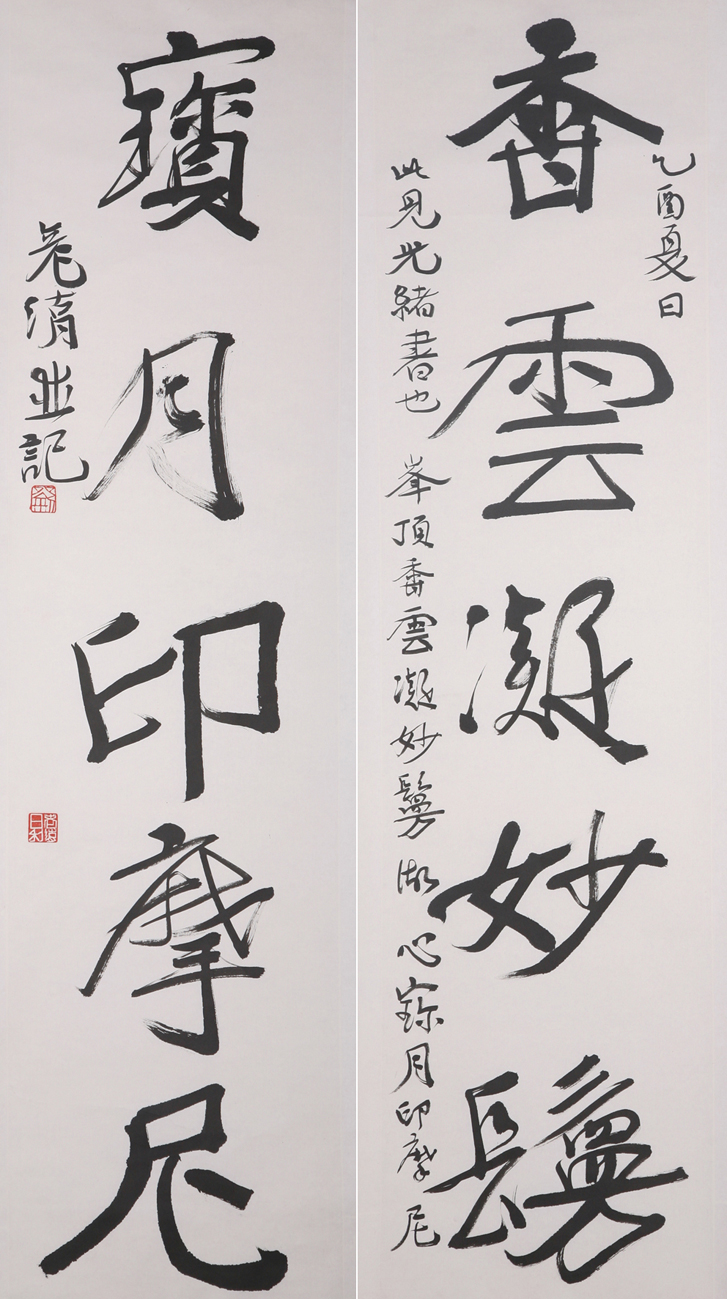 乙酉夏日
香雲凝妙鬘
此見光緒書也 峯頂香雲凝妙鬘 湖心寶月印摩尼
寶月印摩尼
並記